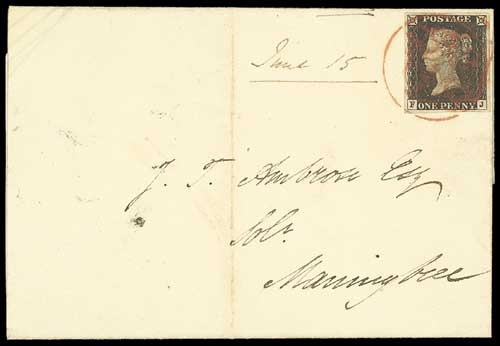 POSTAGE
F ONE PENNY J
June 15
J. T. Ambrose Esq
Solr.
Manningtree